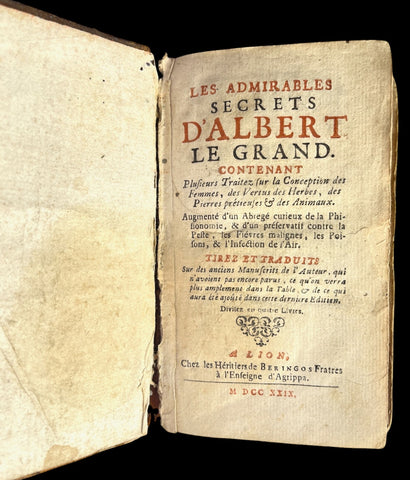 LES ADMIRABLES
SECRETS
D'ALBERT
LE GRAND.
CONTENANT
Plusieurs Traitez sur la Conception des
Femmes, des Vertus des Herbes, des
Pierres prétieuses & des Animaux.
Augmenté d'un Abregé curieux de la Phi-
sionomie, & d'un préservatif contre la
Peste, les Fiévres malignes, les Poi-
sons, & l'Infection de l'Air.
TIREZ ET TRADUITS
Sur des anciens Manuscrits de l'Auteur, qui
n'avoient pas encore parus, ce qu'on verra
plus amplement dans la Table, & de ce qui
aura été ajoûté dans cette derniere Edition.
Divisez en quatre Livres.
A LION,
Chez les Héritiers de BERINGOS Fratres
à l'Enseigne d'Agrippa.
M DCC XXIX.